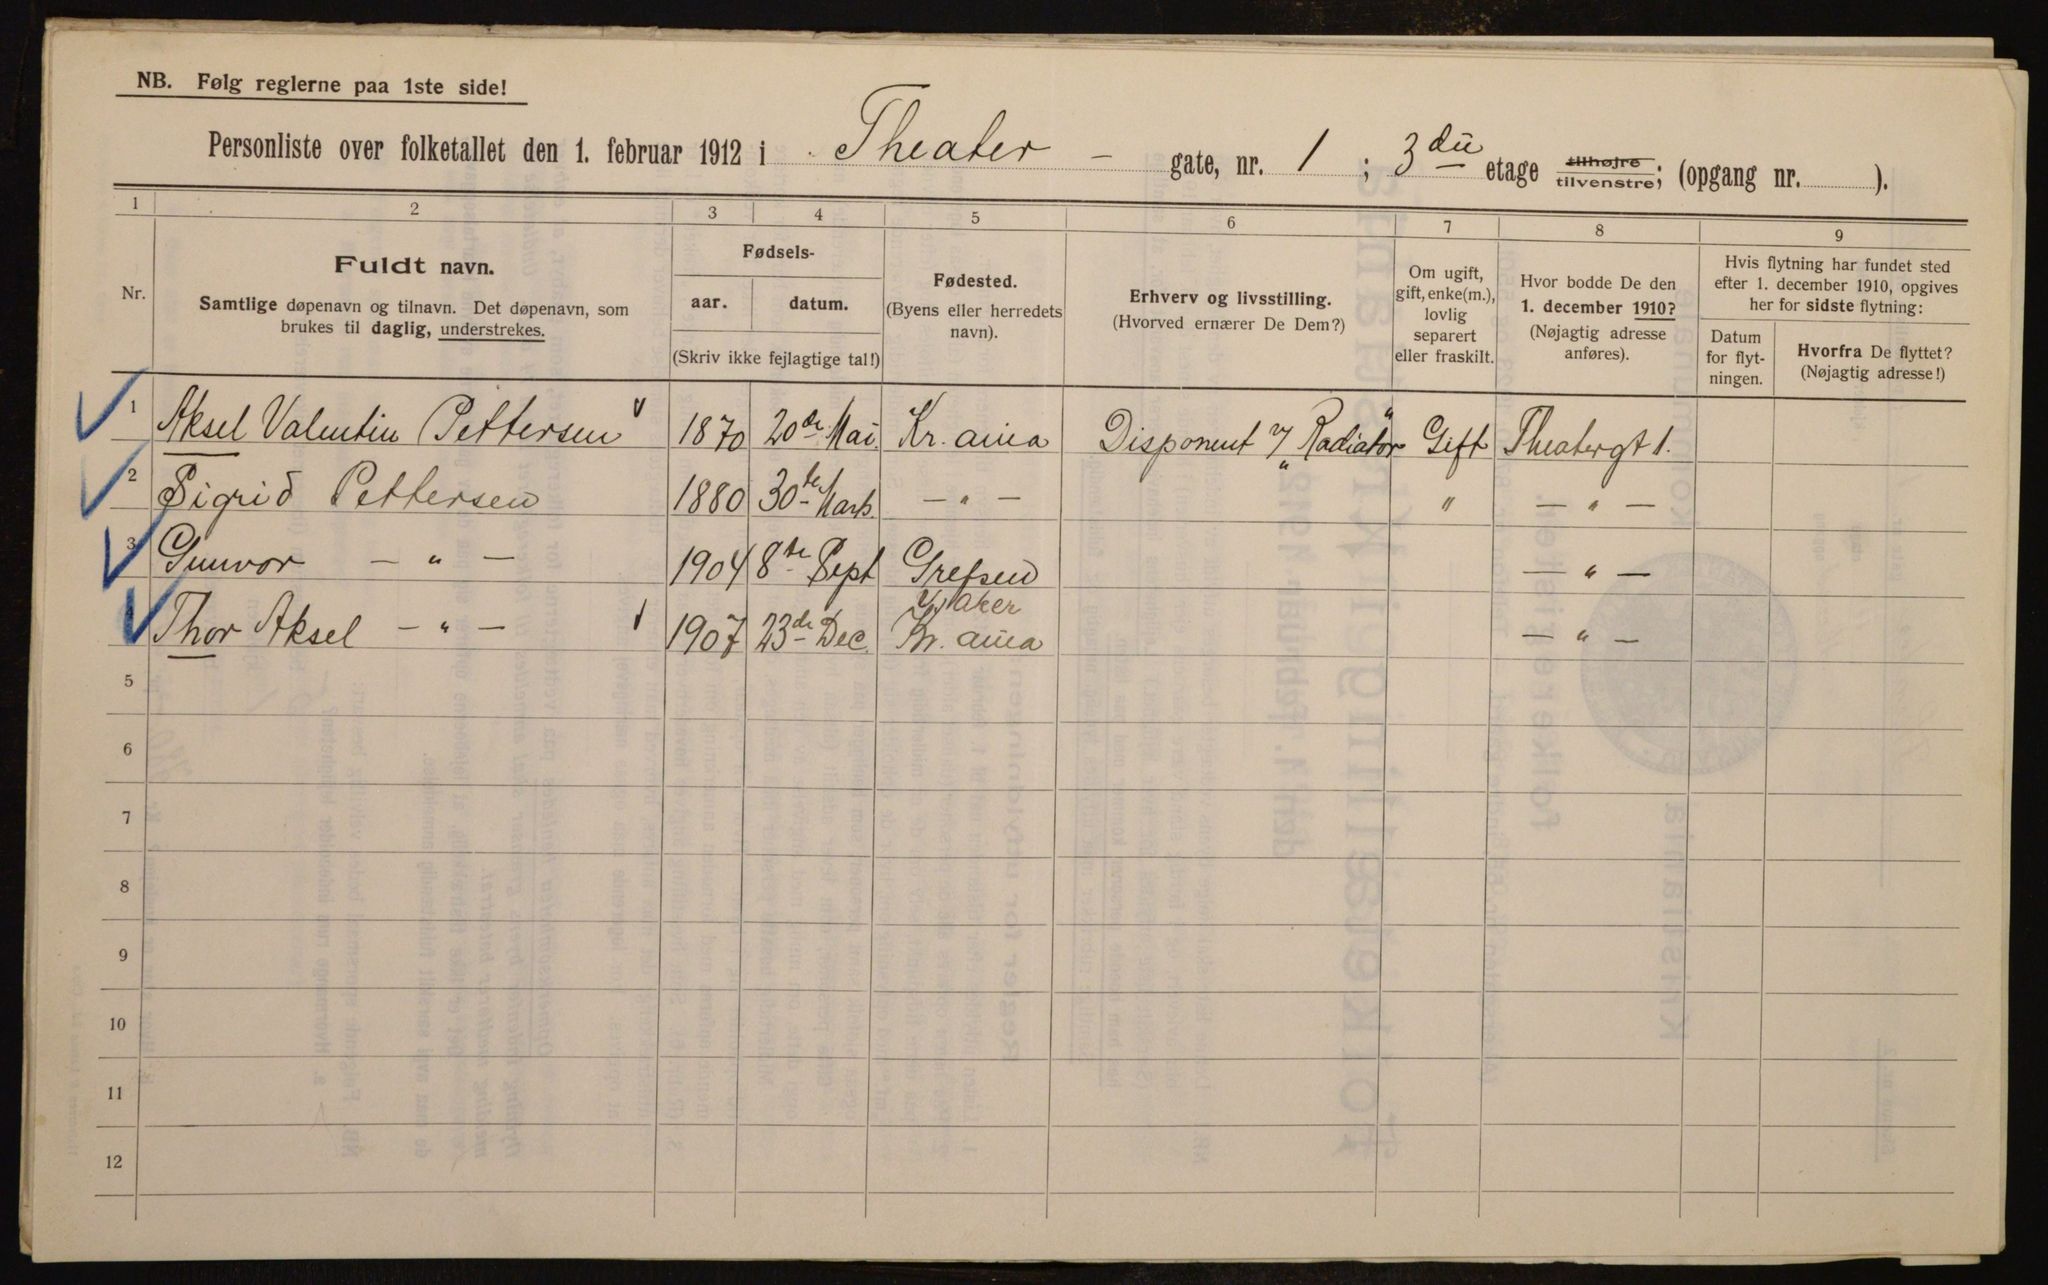 NB. Følg reglerne paa 1ste side!
Personliste over folketallet den 1. februar 1912 i Theater - gate, nr. 1 ; 3die etage tilhøjre tilvenstre; (opgang nr. ).
1 2 3 4 5 6 7 8 9
Nr.
Fuldt navn.
Samtlige døpenavn og tilnavn. Det døpenavn, som
brukes til daglig, understrekes.
Fødsels-
aar. datum.
(Skriv ikke fejlagtige tal!)
Fødested.
(Byens eller herredets
navn).
Erhverv og livsstilling.
(Hvorved ernærer De Dem?)
Om ugift,
gift, enke(m.),
lovlig
separert
eller fraskilt.
Hvor bodde De den
1. december 1910?
(Nøjagtig adresse
anføres).
Hvis flytning har fundet sted
efter 1. december 1910, opgives
her for sidste flytning:
Datum
for flyt-
ningen.
Hvorfra De flyttet?
(Nøjagtig adresse!)
1 Aksel Valentin Pettersen 1870 20de Mai Kr. ania Disponent "Radiator" Gift Theatergt 1.
2 Sigrid Pettersen 1880 30te Marts — " — " — " —
3 Gunvor — " — 1904 8de Sept Grefsen — " —
V. Aker
4 Thor Aksel — " — 1907 23de Dec. Kr. ania — " —
5
6
7
8
9
10
11
12